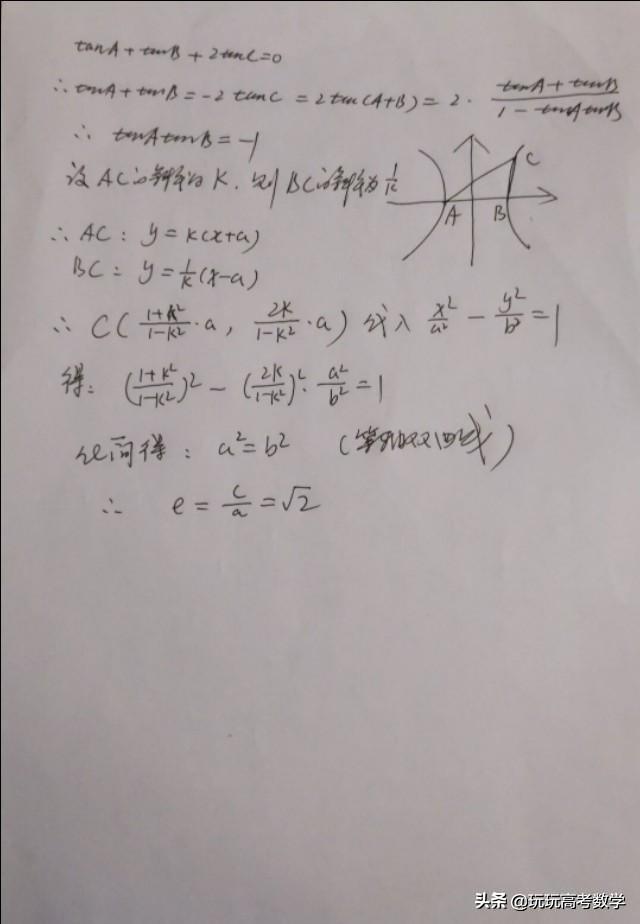 tanA + tanB + 2tanC = 0
∴ tanA + tanB = -2tanC = 2tan(A+B) = 2 · \frac{tanA + tanB}{1 - tanAtanB}
∴ tanAtanB = -1
设AC的斜率为K. 则BC的斜率为 \frac{1}{K}
∴ AC: y = K(x+a)
BC: y = \frac{1}{K}(x-a)
∴ C(\frac{1+K^2}{1-K^2}·a, \frac{2K}{1-K^2}·a) 代入 \frac{x^2}{a^2} - \frac{y^2}{b^2} = 1
得: (\frac{1+K^2}{1-K^2})^2 - (\frac{2K}{1-K^2})^2 · \frac{a^2}{b^2} = 1
化简得: a^2 = b^2 (等轴双曲线)
∴ e = \frac{c}{a} = √2
A
B
C
头条 @玩玩高考数学